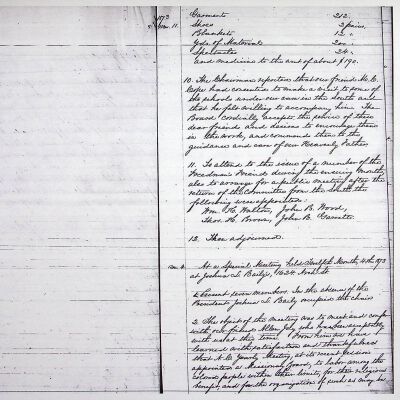 1873
11.
Garments 212.
Shoes 2 pairs.
Blankets 12 "
Yds. of Material 200 "
Spectacles 24 "
and medicine to the am't of about $190.
10. The Chairman reported that our friend M. C.
Cope had consented to make a visit to some of
the schools under our care in the South and
that he felt willing to accompany him. The
Board cordially accepts the service of these
dear friends and desires to encourage them
in the work, and commends them to the
guidance and care of our Heavenly Father
11. To attend to the issue of a number of the
Freedman's Friend during the ensuing month,
also to arrange for a public meeting after the
return of the Committee from the South the
following were appointed:
Wm. H. John B. Wood,
Thos. H. Brown, John B. Garrett.
12. Then adjourned.
At a Special Meeting held Twelfth Month, 4th 1873
at Joshua L. Baily's, 1624 Arch St.
1. Present seven members. In the absence of the
President Joshua L. Baily occupied the chair
2. The object of the meeting was to meet and confer
with our friend Allen Jay who has been acceptably
with us at this time. From him we have
learned with satisfaction and thankfulness
that N. C. Yearly Meeting, at its recent session
appointed a Missionary Board, to labor among the
Colored people within their limits, for their religious
benefit, and for the organization of such as may be